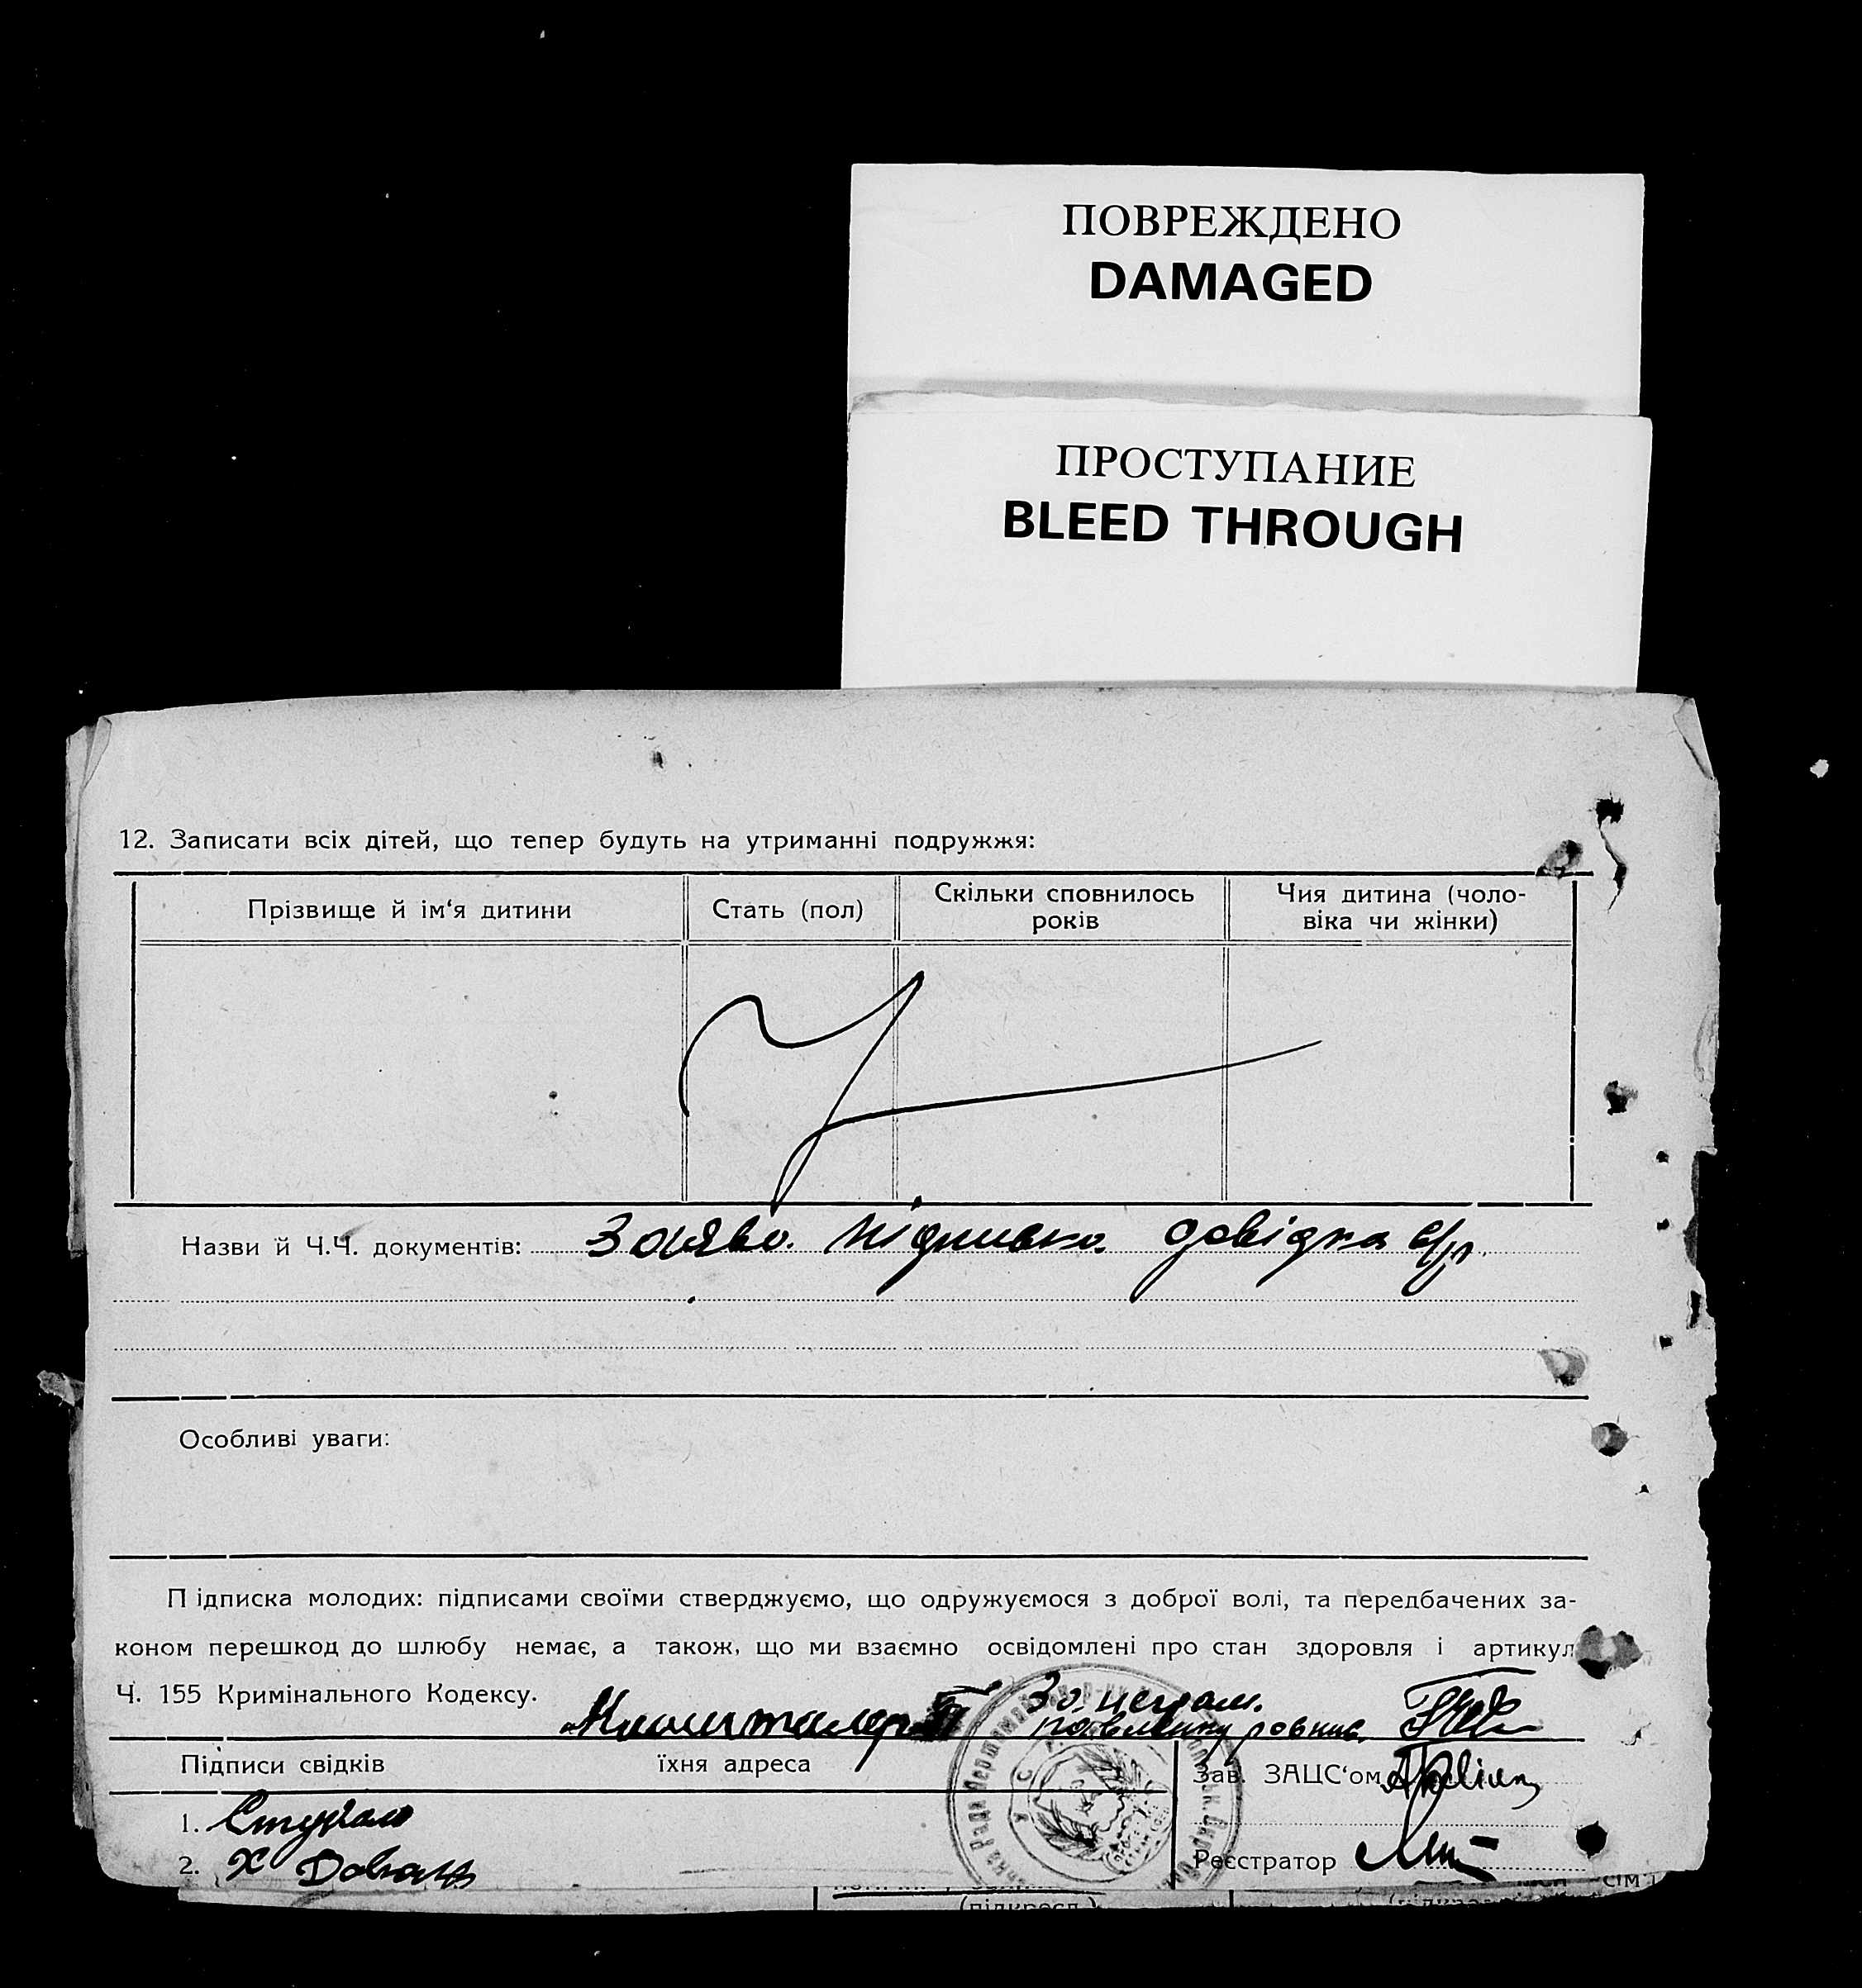 ПОВРЕЖДЕНО
DAMAGED
ПРОСТУПАНИЕ
BLEED THROUGH
12. Записати всіх дітей, що тепер будуть на утриманні подружжя:
Прізвище й ім‘я дитини
Стать (пол)
Скільки сповнилось
років
Чия дитина (чоло-
віка чи жінки)
Назви й Ч.Ч. документів: Заява. підписка. довідка с/р.
Особливі уваги:
Підписка молодих: підписами своїми стверджуємо, що одружуємося з доброї волі, та передбачених за-
коном перешкод до шлюбу немає, а також, що ми взаємно освідомлені про стан здоровля і артикул
Ч. 155 Кримінального Кодексу.
За неграм.
Підписи свідків
їхня адреса
Зав. ЗАЦС‘ом
1.
2.
Реєстратор
(підкресл.)